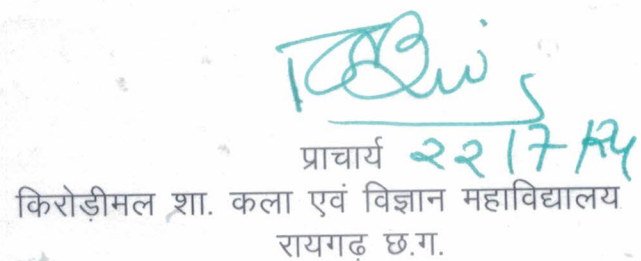 प्राचार्य २२/7/24
किरोड़ीमल शा. कला एवं विज्ञान महाविद्यालय
रायगढ़ छ.ग.